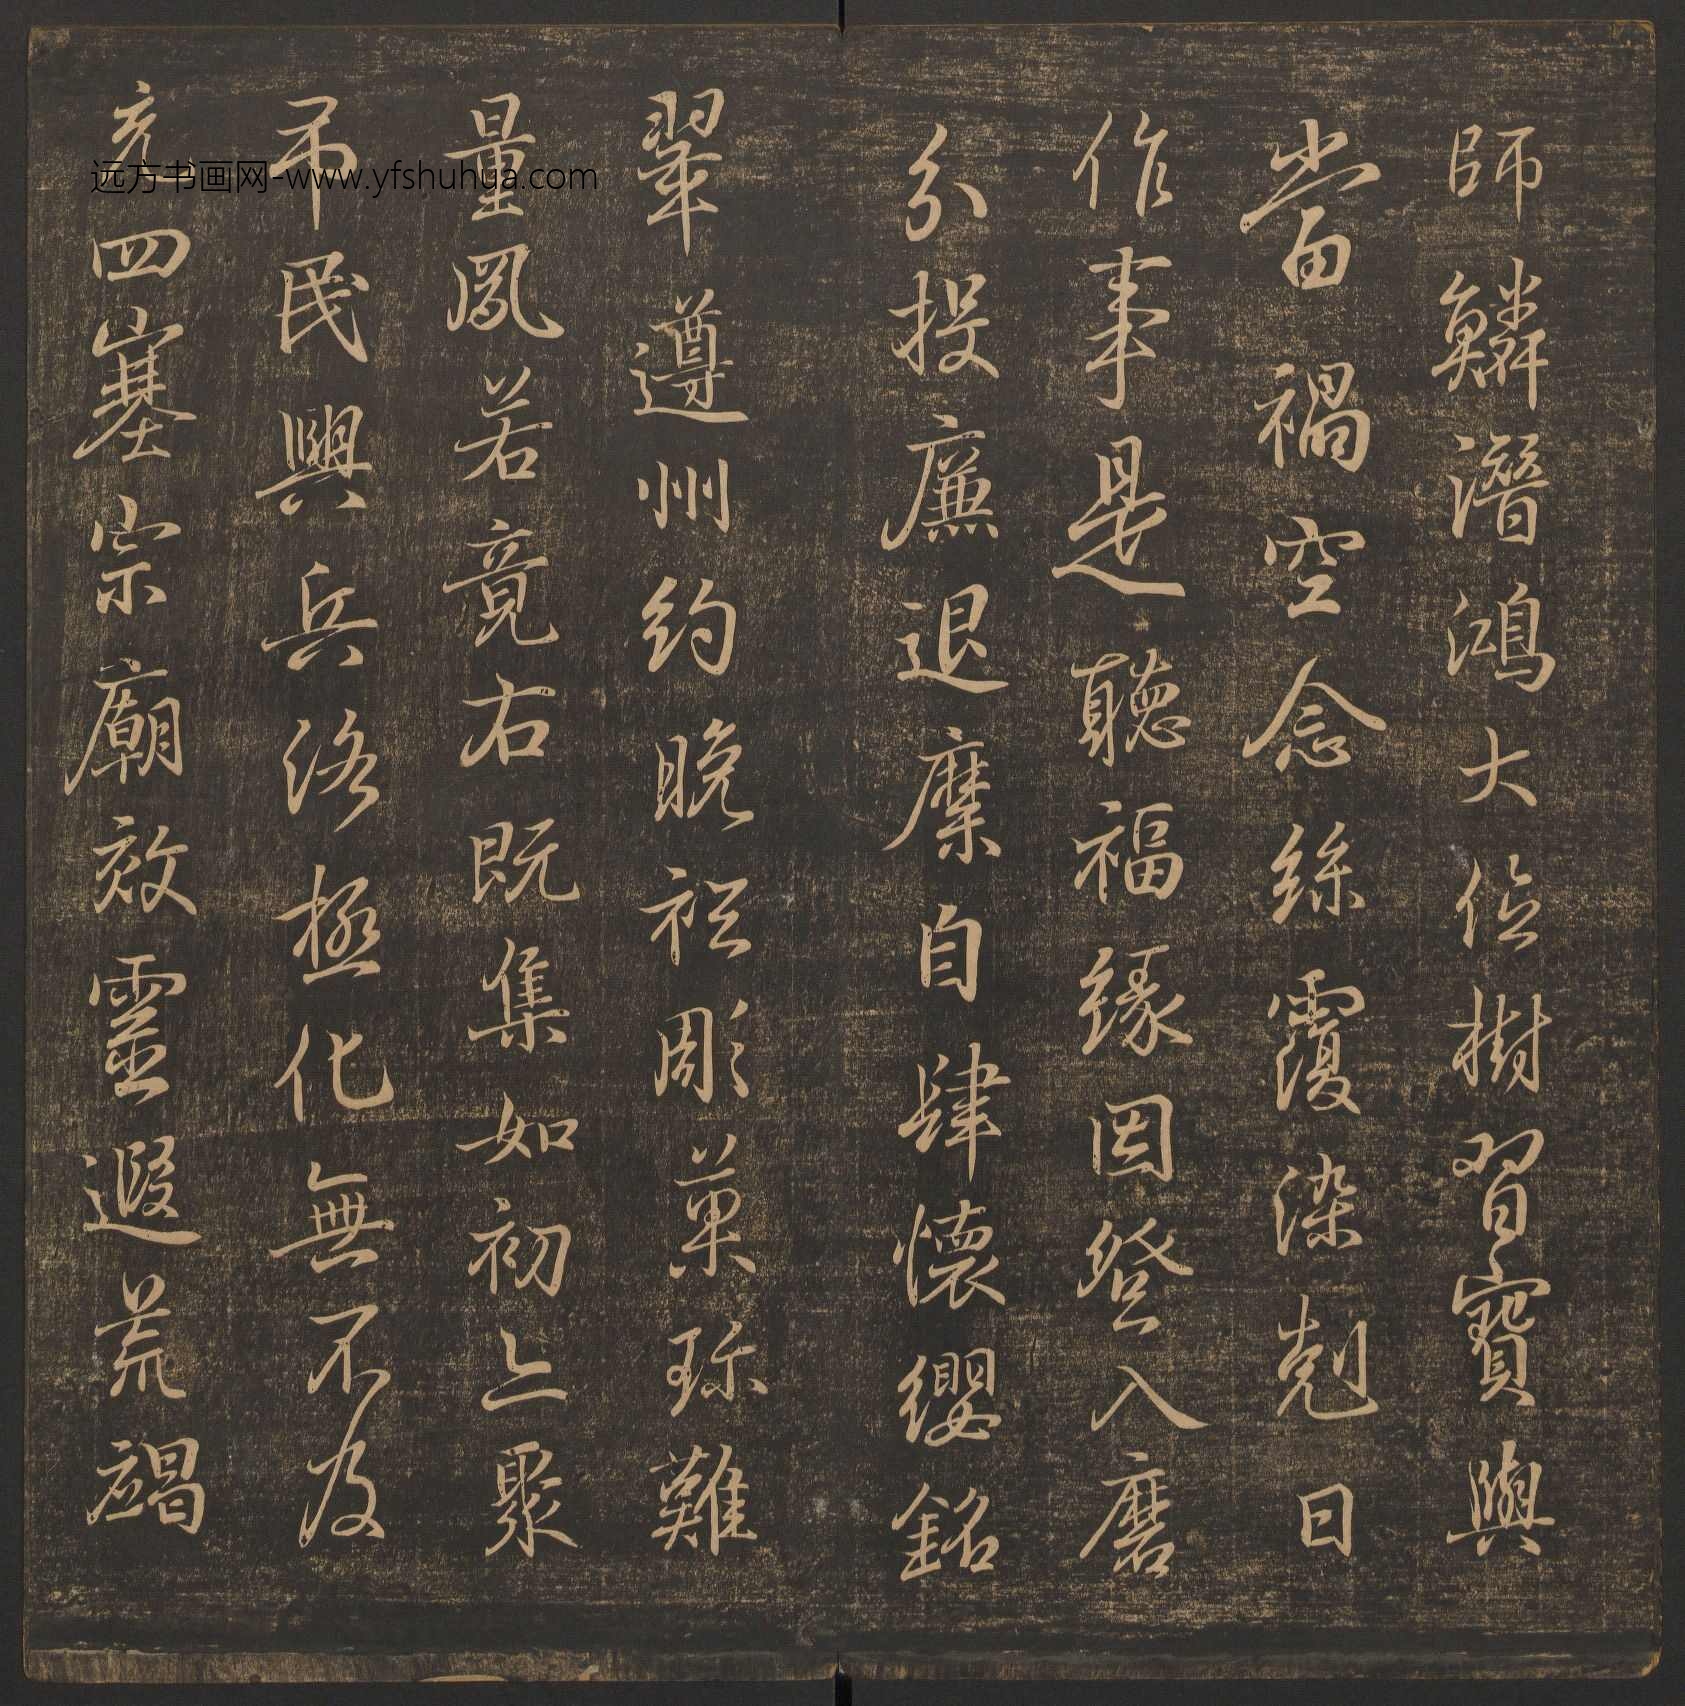 師鱗潛鴻大位樹習寶與
當禍空念絲覆染剋日
作事是聽福緣因登入磨
分投廉退縻自肆懷纓銘
翠遵州約晚祀彫草珎難
量鳳若竟右既集如初上聚
吊民興兵洛極化無不及
充四塞宗廟效靈遐荒謁
远方书画网-www.yfshuhua.com